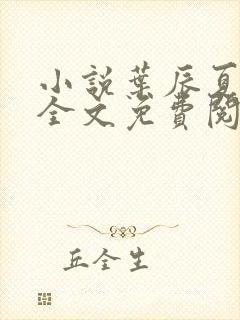 小说葉辰夏
全文免費閱
丘全生